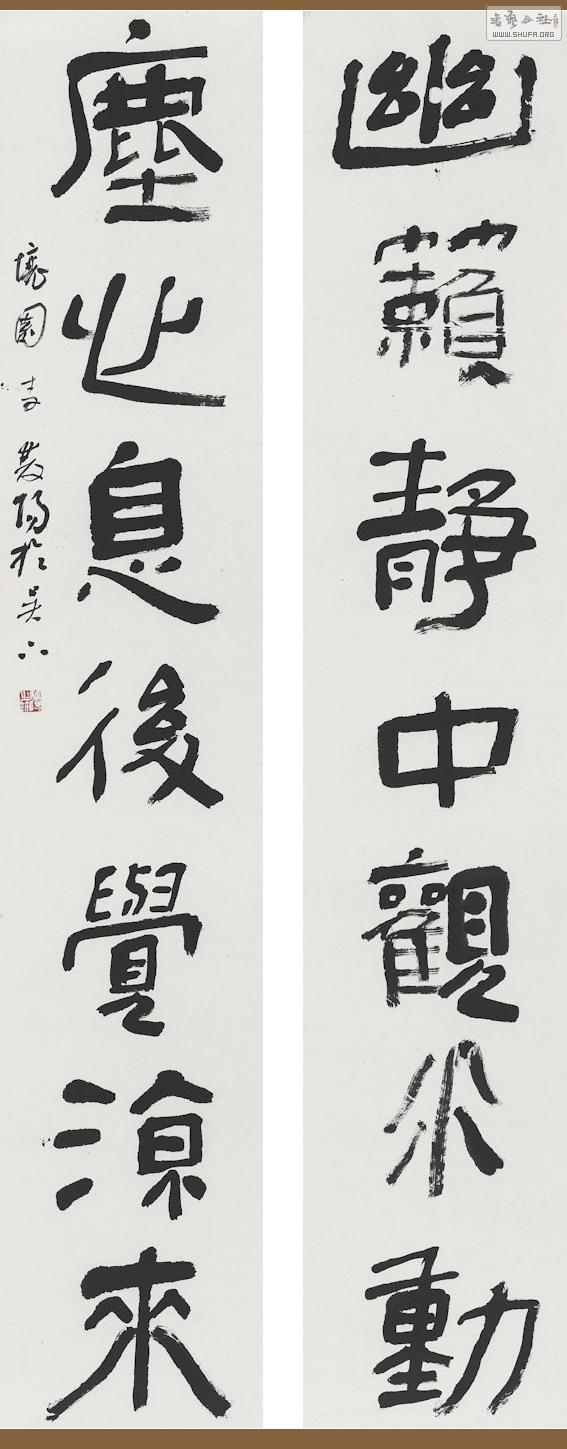 書藝公社
WWW.SHUFA.ORG
幽籟靜中觀水動
塵心息後覺涼來
園李雙陽於吳下